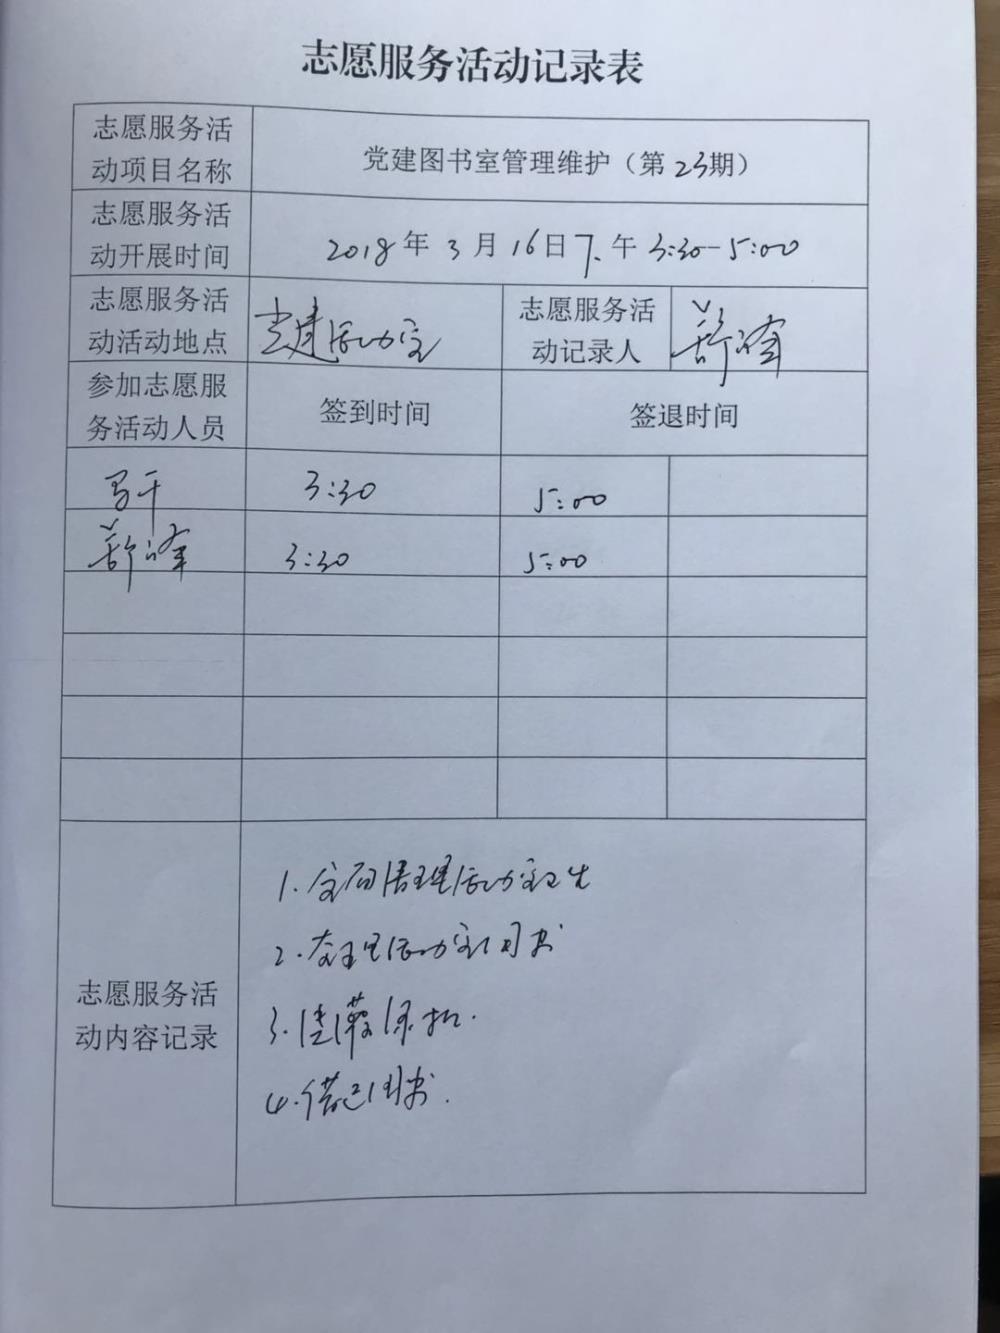 志愿服务活动记录表
志愿服务活
动项目名称
党建图书室管理维护（第23期）
志愿服务活
动开展时间
2018年3月16日下午3:30-5:00
志愿服务活
动活动地点
党建活动室
志愿服务活
动记录人
薛峰
参加志愿服
务活动人员
签到时间
签退时间
马千
3:30
5:00
薛峰
3:30
5:00
志愿服务活
动内容记录
1.全面清理活动室卫生
2.整理活动室图书
3.
4.借还图书.